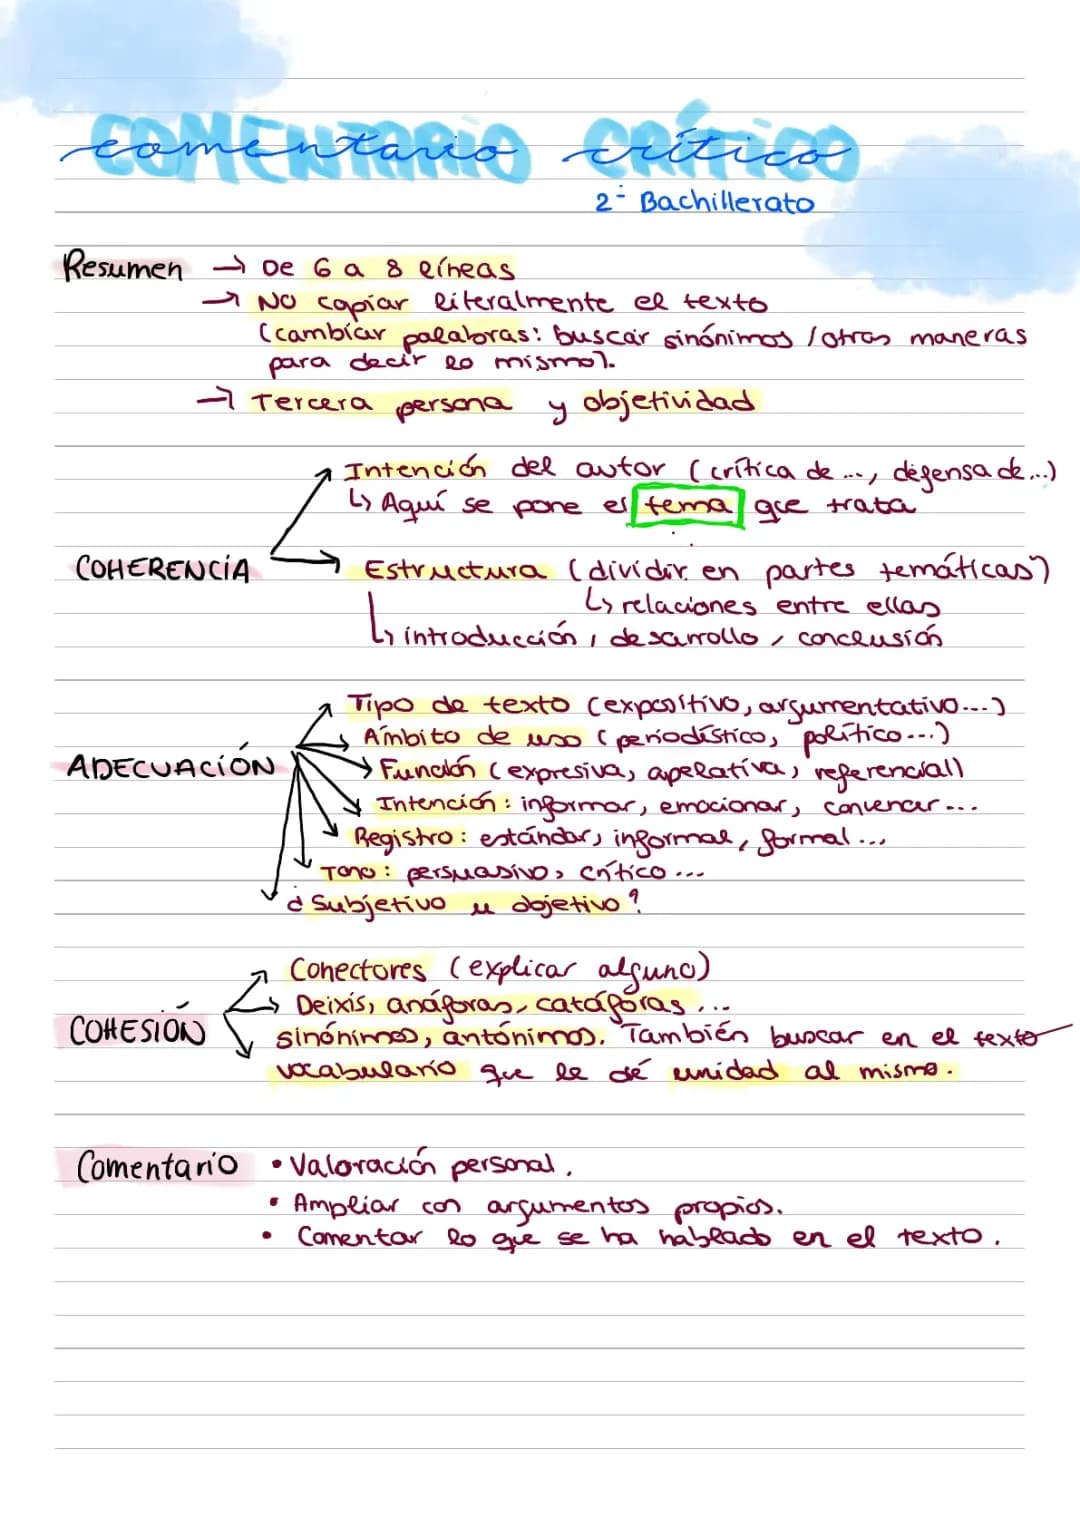 COMENTARIO CRÍTICO
comentario crítico
2º Bachillerato
Resumen → De 6 a 8 líneas
→ No copiar literalmente el texto
(cambiar palabras: buscar sinónimos / otras maneras
para decir lo mismo).
→ Tercera persona y objetividad
Intención del autor (crítica de ..., defensa de...)
↳ Aquí se pone el tema que trata
COHERENCIA
Estructura (dividir en partes temáticas)
↳ relaciones entre ellas
↳ introducción, desarrollo, conclusión
Tipo de texto (expositivo, argumentativo...)
Ámbito de uso (periodístico, político...)
ADECUACIÓN
Función (expresiva, apelativa, referencial)
Intención: informar, emocionar, convencer...
Registro: estándar, informal, formal...
Tono: persuasivo, crítico...
¿Subjetivo u objetivo?
Conectores (explicar alguno)
Deixis, anáforas, catáforas...
COHESIÓN
sinónimos, antónimos. También buscar en el texto
vocabulario que le dé unidad al mismo.
Comentario • Valoración personal.
• Ampliar con argumentos propios.
• Comentar lo que se ha hablado en el texto.